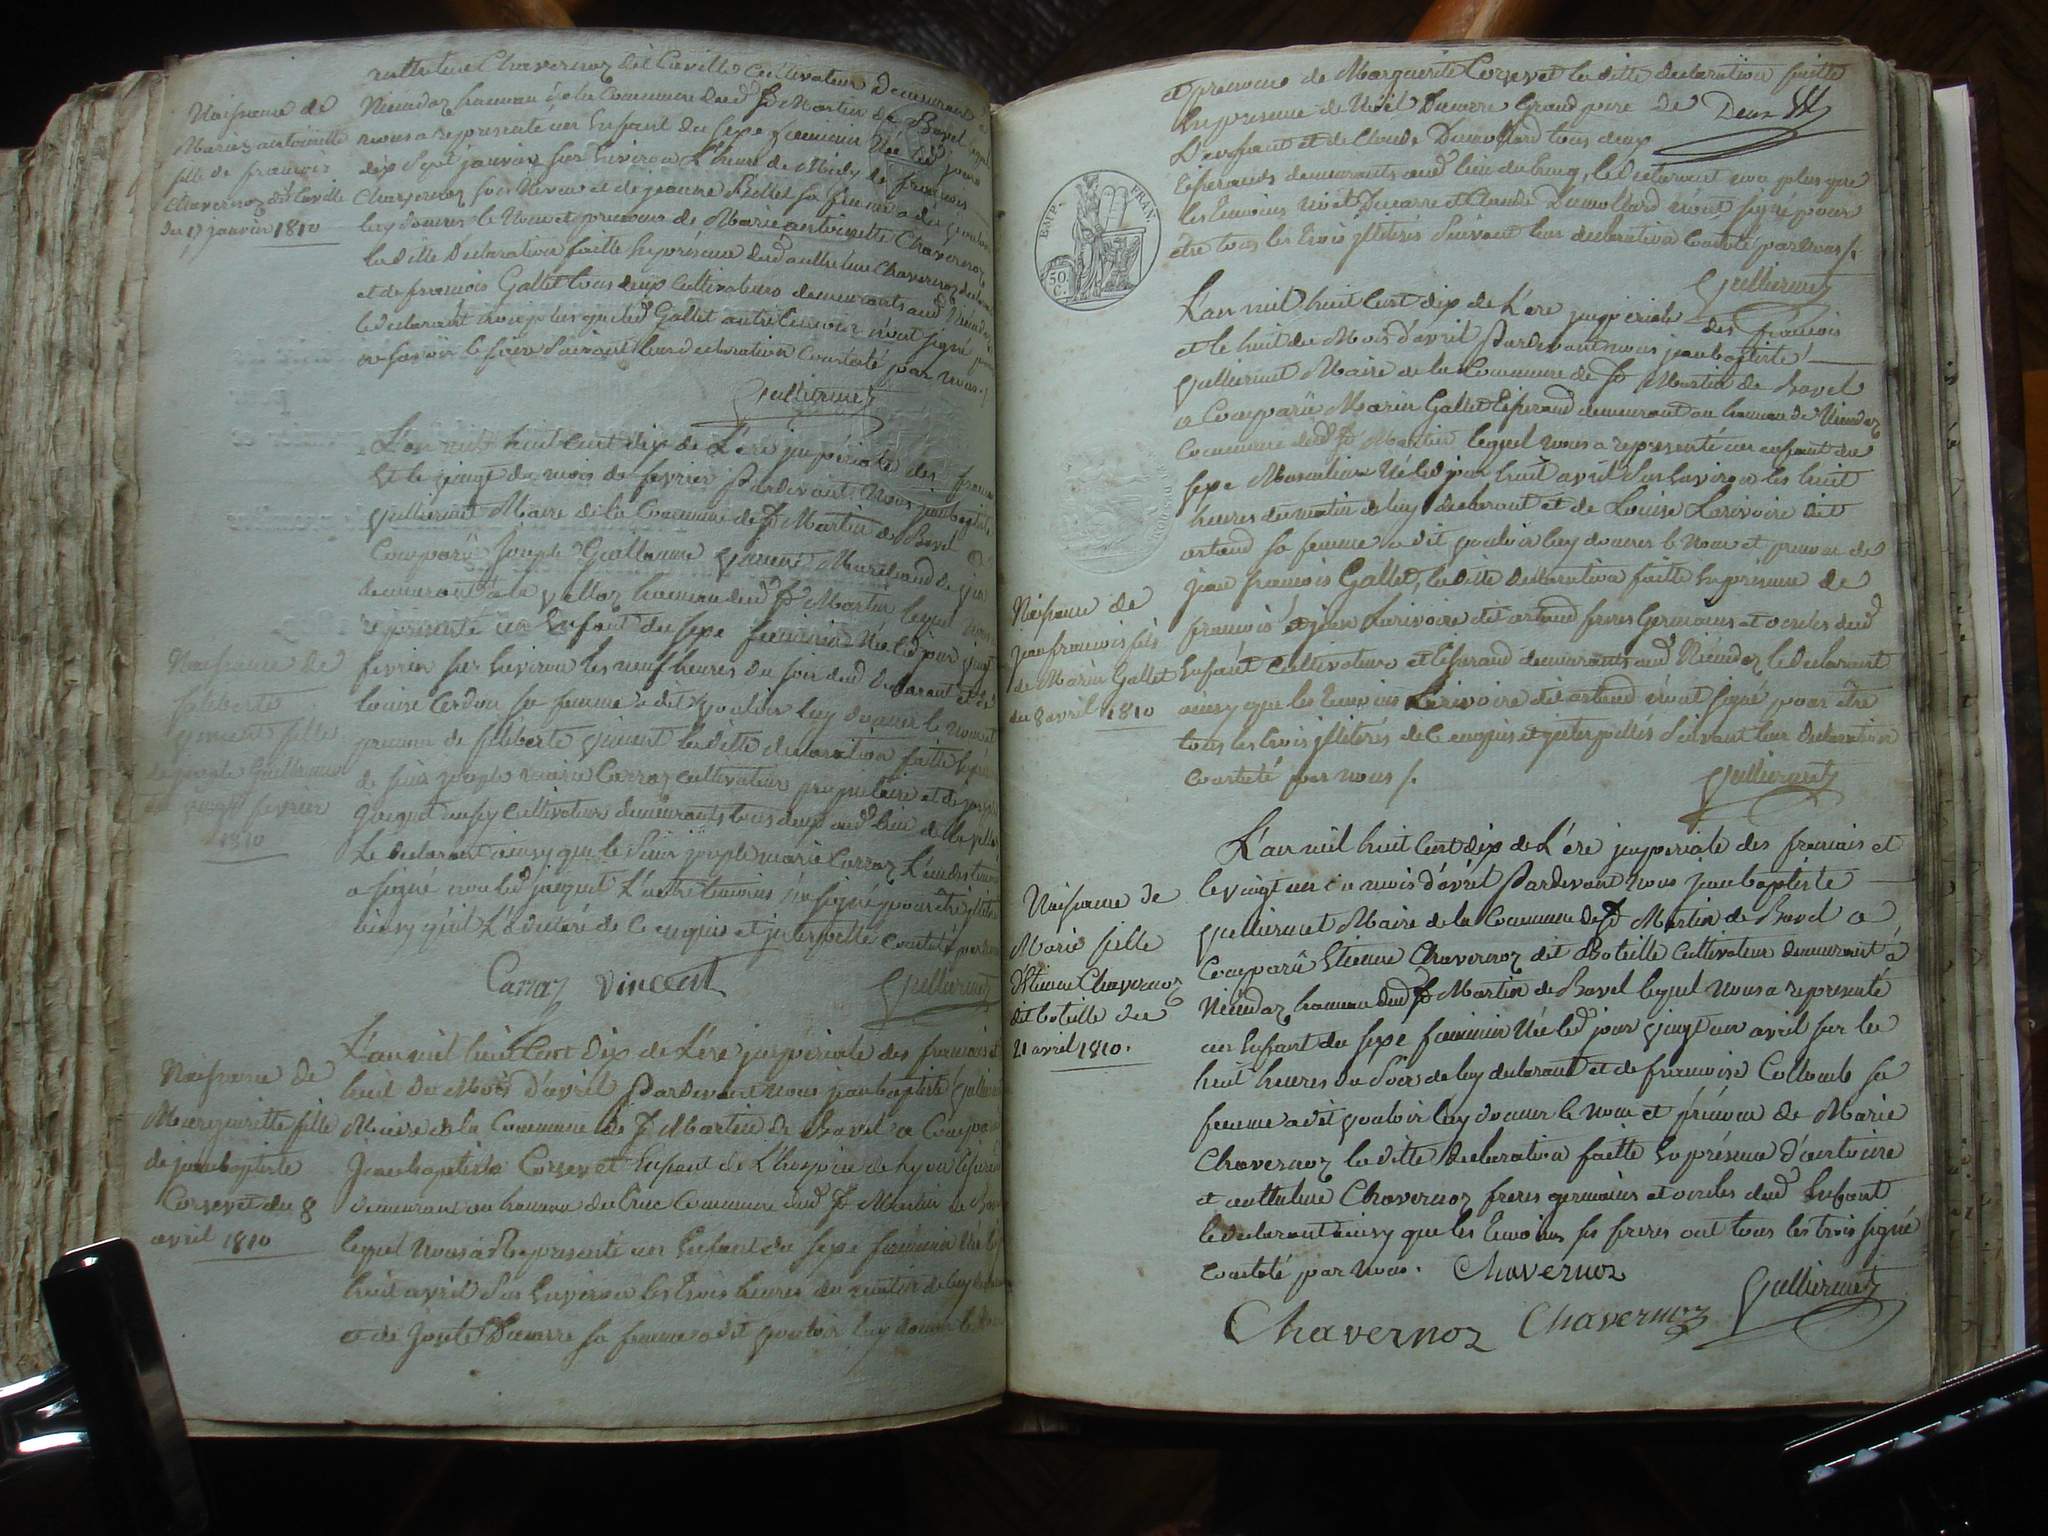 Naissance de
Marie antoinette
fille de françois
Chavernoz dit Caville
du 17 janvier 1810
anthelme Chavernoz dit Caville Cultivateur demeurant à
hameau de la Commune dud St Martin de Bavel
nous a representé un Enfant du sexe feminin Née led jour
dix Sept janvier sur Environ L'heure de Midy de françois
Chavernoz son Neveu et de jeanne Billet sa femme a dit vouloir
luy donner le Nom et prenom de Marie antoinette Chavernoz
la ditte Declaration faitte En presence dud anthelme Chavernoz
et de francois Gallet tous deux Cultivateurs demeurants aud
le declarant non plus que led Gallet autre temoin n'ont signé pour
ne savoir le faire Suivant leur declaration Constaté par nous
Gullierme
L'an mil huit Cent dix de L'ere jmperiale des francais
Et le vingt du mois de fevrier Pardevant Nous jeanbaptiste
Gulliermet Maire de la Commune de St Martin de Bavel a
Comparü Joseph Guillaume Vincent Marchand de vin
demeurant à la hameau dud St Martin lequel nous a
representé un Enfant du sexe feminin Née led jour vingt
fevrier sur Environ les neuf heures du soir dud declarant et de
Louise Cerdon sa femme a dit vouloir luy donner le nom et
prenom de filiberte Vincent la ditte declaration faitte En presence
de sieur joseph marie Carraz cultivateur proprietaire et de joseph
jacquet aussy cultivateur demeurants tous deux aud lieu de
Le declarant ainsy que le Sieur joseph marie Carraz L'un des temoins
a signé non led jacquet L'autre temoins
ainsy qu'il L'a declaré de Ce enquis et jnterpellé Constaté par nous
Naissance de
filiberte
Vincent fille
de joseph Guillaume
du vingt fevrier
1810
Carraz Vincent Gulliermet
L'an mil huit Cent dix de L'ere jmperiale des francais et
huit du Mois d'avril Pardevant Nous jeanbaptiste Gulliermet
Maire de la Commune de St Martin de Bavel a Comparü
Jeanbaptiste Corsevet Enfant de L'hospice de Lyon
demeurant au hameau du truc Commune dud St Martin de Bavel
lequel Nous a Representé un Enfant du sexe feminin Née le
huit avril Sur Environ les trois heures du matin de luy declarant
et de Josete Ducarre sa femme a dit vouloir luy donner le Nom
Naissance de
Marguerithe fille
de jeanbaptiste
Corsevet du 8
avril 1810
et prenom de Marguerite Corsevet la ditte declaration faitte
En presence de Noël Ducarre Grand pere de
L'enfant et de Claude Dumollard tous deux
demeurants aud lieu du truq, le declarant non plus que
les temoins Noël Ducarre et Claude Dumollard n'ont signé pour
etre tous les trois jlliterés Suivant leur declaration Constaté par Nous
Gulliermet
EMP. FRAN.
50 C.
L'an mil huit Cent dix de L'ere jmperiale des francois
et le huit du Mois d'avril Pardevant nous jeanbaptiste
Gulliermet Maire de la Commune de St Martin de Bavel
a Comparü Marin Gallet demeurant au hameau de
Commune dud St Martin lequel nous a representé un enfant du
sexe Masculin Né led jour huit avril Sur Environ les huit
heures du matin de luy declarant et de Louise Larivoire dit
artaud sa femme a dit vouloir luy donner le Nom et prenom de
jean francois Gallet, la ditte declaration faitte En presence de
francois et jean Larivoire dit artaud freres Germains et oncles dud
Enfant Cultivateurs et demeurants aud le declarant
ainsy que les temoins Larivoire dit artaud n'ont signé pour être
tous les trois jlliterés de Ce enquis et jnterpellés Suivant leur declaration
Constaté par nous
Gulliermet
Naissance de
jean francois fils
de Marin Gallet
du 8 avril 1810
L'an mil huit Cent dix de L'ere jmperiale des francais et
le vingt un du mois d'avril Pardevant Nous jeanbaptiste
Gulliermet Maire de la Commune de St Martin de Bavel a
Comparü Etienne Chavernoz dit Boteille Cultivateur demeurant à
hameau dud St Martin de Bavel lequel Nous a representé
un Enfant du sexe feminin Née led jour vingt un avril sur les
huit heures du Soir de luy declarant et de francoise Collomb sa
femme a dit vouloir luy donner le nom et prénom de Marie
Chavernoz la ditte declaration faitte En présence d'antoine
et anthelme Chavernoz freres germains et oncles dud Enfant
le declarant ainsy que les temoins ses freres ont tous les trois signé
Constaté par Nous. Chavernoz
Naissance de
Marie fille
d'Etienne Chavernoz
dit boteille du
21 avril 1810.
Chavernoz Chavernoz Gulliermet